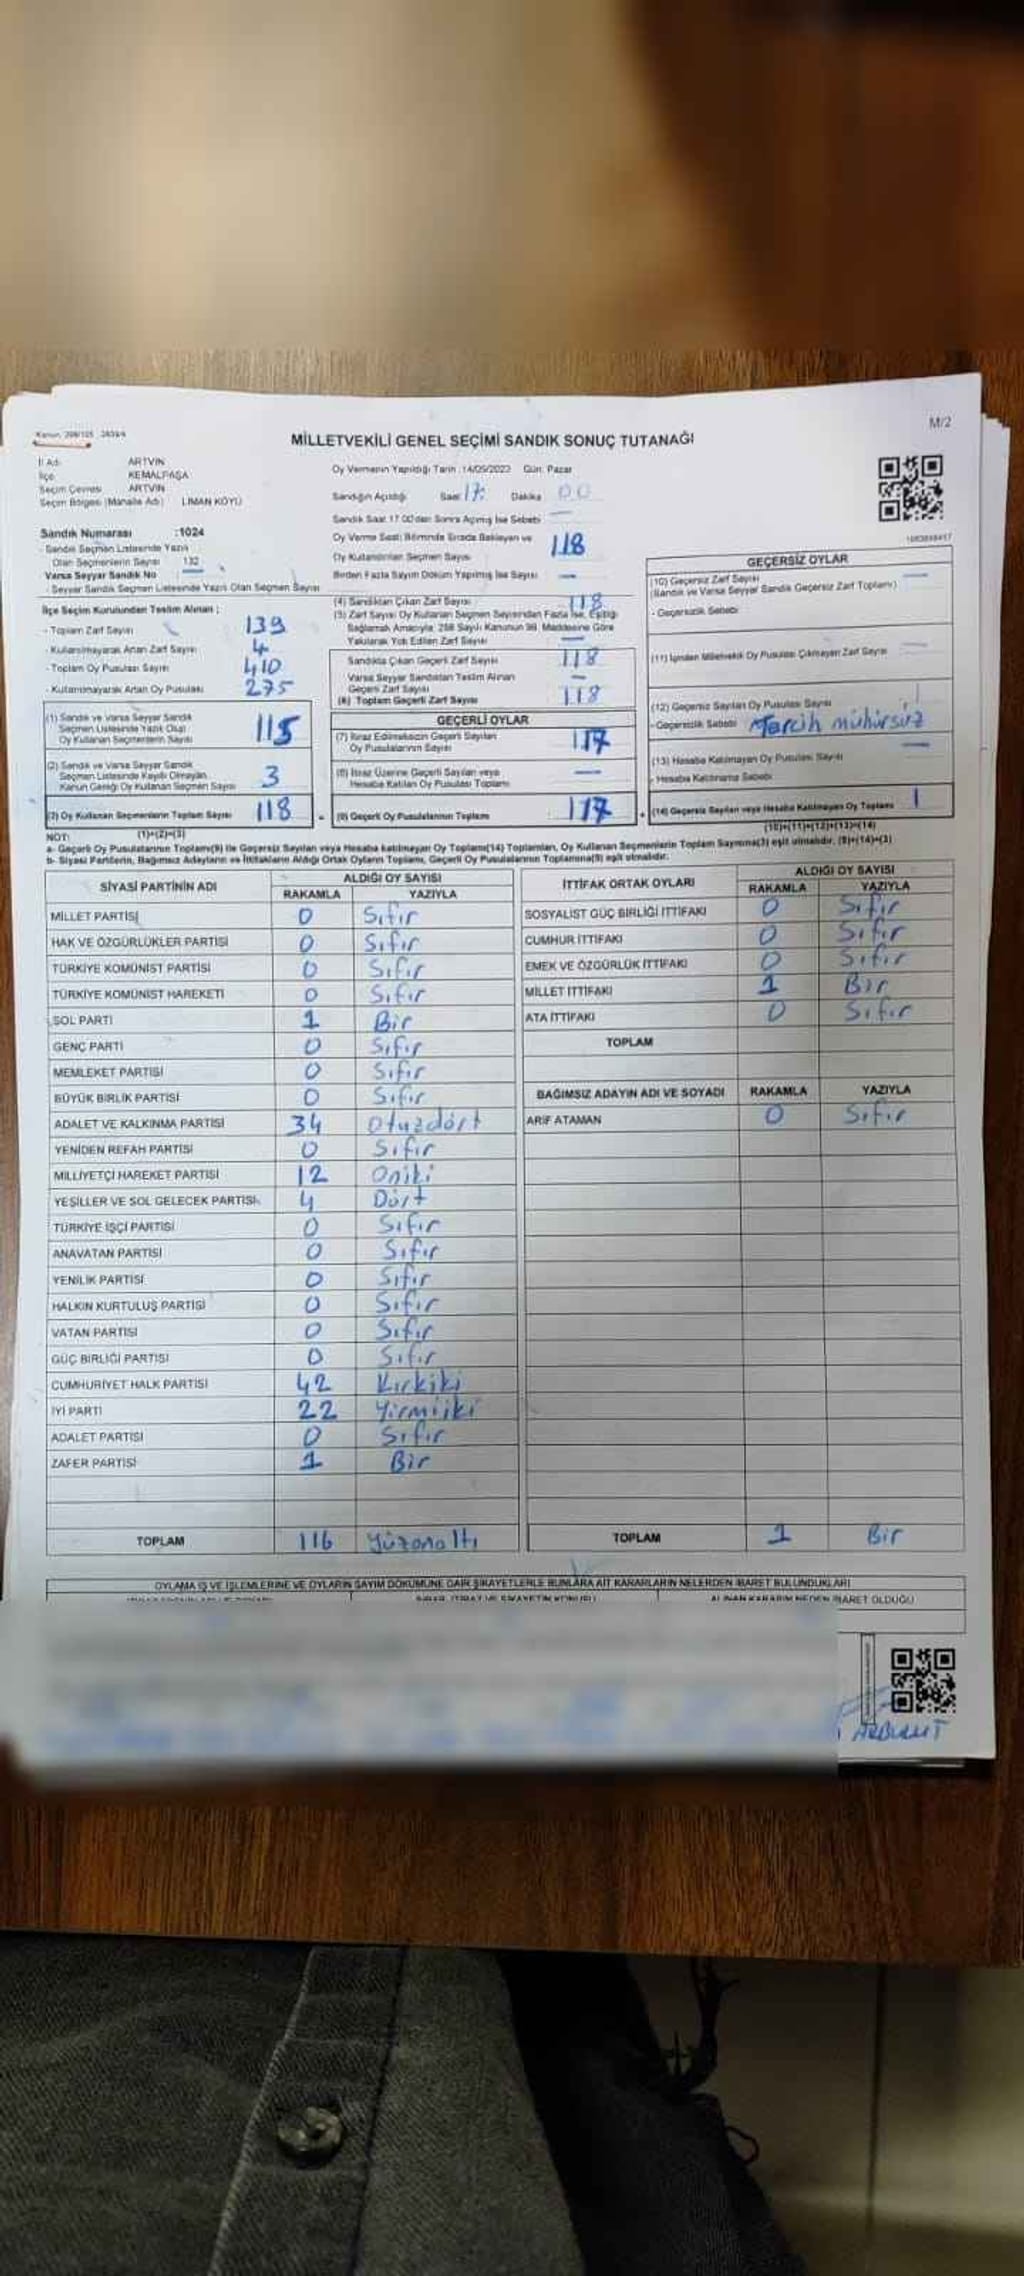 M/2
MİLLETVEKİLİ GENEL SEÇİMİ SANDIK SONUÇ TUTANAĞI
İl Adı: ARTVİN
İlçe: KEMALPAŞA
Seçim Çevresi ARTVİN
Seçim Bölgesi (Mahalle Adı) LİMAN KÖYÜ
Sandık Numarası :1024
- Sandık Seçmen Listesinde Yazılı
Olan Seçmenlerin Sayısı 132
Varsa Seyyar Sandık No
- Seyyar Sandık Seçmen Listesinde Yazılı Olan Seçmen Sayısı
Oy Vermenin Yapıldığı Tarih :14/05/2023 Gün: Pazar
Sandığın Açıldığı Saat 17: Dakika 00
Sandık Saat 17.00'dan Sonra Açılmış İse Sebebi —
Oy Verme Saati Bitiminde Sırada Bekleyen ve
Oy Kullandırılan Seçmen Sayısı 118
Birden Fazla Sayım Döküm Yapılmış İse Sayısı —
İlçe Seçim Kurulundan Teslim Alınan ;
- Toplam Zarf Sayısı 139
- Kullanılmayarak Artan Zarf Sayısı 4
- Toplam Oy Pusulası Sayısı 410
- Kullanılmayarak Artan Oy Pusulası 275
(1) Sandık ve Varsa Seyyar Sandık
Seçmen Listesinde Yazılı Olup
Oy Kullanan Seçmenlerin Sayısı 115
(2) Sandık ve Varsa Seyyar Sandık
Seçmen Listesinde Kayıtlı Olmayan
Kanun Gereği Oy Kullanan Seçmen Sayısı 3
(3) Oy Kullanan Seçmenlerin Toplam Sayısı 118
(1)+(2)=(3)
(4) Sandıktan Çıkan Zarf Sayısı 118
(5) Zarf Sayısı Oy Kullanan Seçmen Sayısından Fazla İse, Eşitliği
Sağlamak Amacıyla, 298 Sayılı Kanunun 98. Maddesine Göre
Yakılarak Yok Edilen Zarf Sayısı —
Sandıkta Çıkan Geçerli Zarf Sayısı 118
Varsa Seyyar Sandıktan Teslim Alınan
Geçerli Zarf Sayısı —
(6) Toplam Geçerli Zarf Sayısı 118
GEÇERLİ OYLAR
(7) İtiraz Edilmeksizin Geçerli Sayılan
Oy Pusulalarının Sayısı 117
(8) İtiraz Üzerine Geçerli Sayılan veya
Hesaba Katılan Oy Pusulası Toplamı —
(9) Geçerli Oy Pusulalarının Toplamı 117
GEÇERSİZ OYLAR
(10) Geçersiz Zarf Sayısı —
(Sandık ve Varsa Seyyar Sandık Geçersiz Zarf Toplamı)
- Geçersizlik Sebebi
(11) İçinden Milletvekili Oy Pusulası Çıkmayan Zarf Sayısı —
(12) Geçersiz Sayılan Oy Pusulası Sayısı 1
- Geçersizlik Sebebi Tercih mühürsüz
(13) Hesaba Katılmayan Oy Pusulası Sayısı —
- Hesaba Katılmama Sebebi
(14) Geçersiz Sayılan veya Hesaba Katılmayan Oy Toplamı 1
(10)+(11)+(12)+(13)=(14)
NOT:
a- Geçerli Oy Pusulalarının Toplamı(9) ile Geçersiz Sayılan veya Hesaba katılmayan Oy Toplamı(14) Toplamları, Oy Kullanan Seçmenlerin Toplam Sayısına(3) eşit olmalıdır. (9)+(14)=(3)
b- Siyasi Partilerin, Bağımsız Adayların ve İttifakların Aldığı Ortak Oyların Toplamı, Geçerli Oy Pusulalarının Toplamına(9) eşit olmalıdır.
SİYASİ PARTİNİN ADI ALDIĞI OY SAYISI
RAKAMLA YAZIYLA
MİLLET PARTİSİ 0 Sıfır
HAK VE ÖZGÜRLÜKLER PARTİSİ 0 Sıfır
TÜRKİYE KOMÜNİST PARTİSİ 0 Sıfır
TÜRKİYE KOMÜNİST HAREKETİ 0 Sıfır
SOL PARTİ 1 Bir
GENÇ PARTİ 0 Sıfır
MEMLEKET PARTİSİ 0 Sıfır
BÜYÜK BİRLİK PARTİSİ 0 Sıfır
ADALET VE KALKINMA PARTİSİ 34 Otuzdört
YENİDEN REFAH PARTİSİ 0 Sıfır
MİLLİYETÇİ HAREKET PARTİSİ 12 Oniki
YEŞİLLER VE SOL GELECEK PARTİSİ 4 Dört
TÜRKİYE İŞÇİ PARTİSİ 0 Sıfır
ANAVATAN PARTİSİ 0 Sıfır
YENİLİK PARTİSİ 0 Sıfır
HALKIN KURTULUŞ PARTİSİ 0 Sıfır
VATAN PARTİSİ 0 Sıfır
GÜÇ BİRLİĞİ PARTİSİ 0 Sıfır
CUMHURİYET HALK PARTİSİ 42 Kırkiki
İYİ PARTİ 22 Yirmiiki
ADALET PARTİSİ 0 Sıfır
ZAFER PARTİSİ 1 Bir
TOPLAM 116 Yüzonaltı
İTTİFAK ORTAK OYLARI ALDIĞI OY SAYISI
RAKAMLA YAZIYLA
SOSYALİST GÜÇ BİRLİĞİ İTTİFAKI 0 Sıfır
CUMHUR İTTİFAKI 0 Sıfır
EMEK VE ÖZGÜRLÜK İTTİFAKI 0 Sıfır
MİLLET İTTİFAKI 1 Bir
ATA İTTİFAKI 0 Sıfır
TOPLAM
BAĞIMSIZ ADAYIN ADI VE SOYADI RAKAMLA YAZIYLA
ARİF ATAMAN 0 Sıfır
TOPLAM 1 Bir
OYLAMA İŞ VE İŞLEMLERİNE VE OYLARIN SAYIM DÖKÜMÜNE DAİR ŞİKAYETLERLE BUNLARA AİT KARARLARIN NELERDEN İBARET BULUNDUKLARI
ALINAN KARARIN NEDEN İBARET OLDUĞU